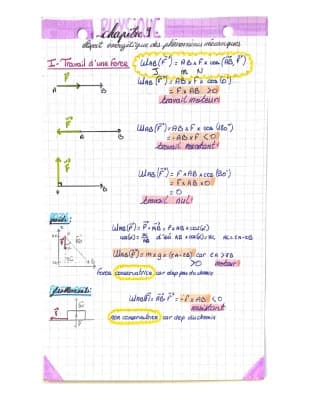 chapitre 1
Aspect énergétique des phénomènes mécaniques
I - Travail d'une force
WAB(F⃗) = AB x F x cos(AB⃗, F⃗)
J m N
WAB(F⃗) = AB x F x cos(0°)
= F x AB > 0
travail moteur
WAB(F⃗) = AB x F x cos(180°)
= -AB x F < 0
travail résistant
WAB(F⃗) = F x AB x cos(90°)
= F x AB x 0
= 0
travail nul
poids:
WAB(P⃗) = P⃗ x AB⃗ = P x AB x cos(α)
cos(α) = AC/AB d'où AB x cos(α) = AC AC = zA - zB
WAB(P⃗) = m x g x (zA - zB) car zA > zB
> 0 moteur
force conservatrice car dep pas du chemin
frottements:
WAB(f⃗) = AB⃗ · f⃗ = -f x AB < 0
résistant
non conservatrice car dep du chemin